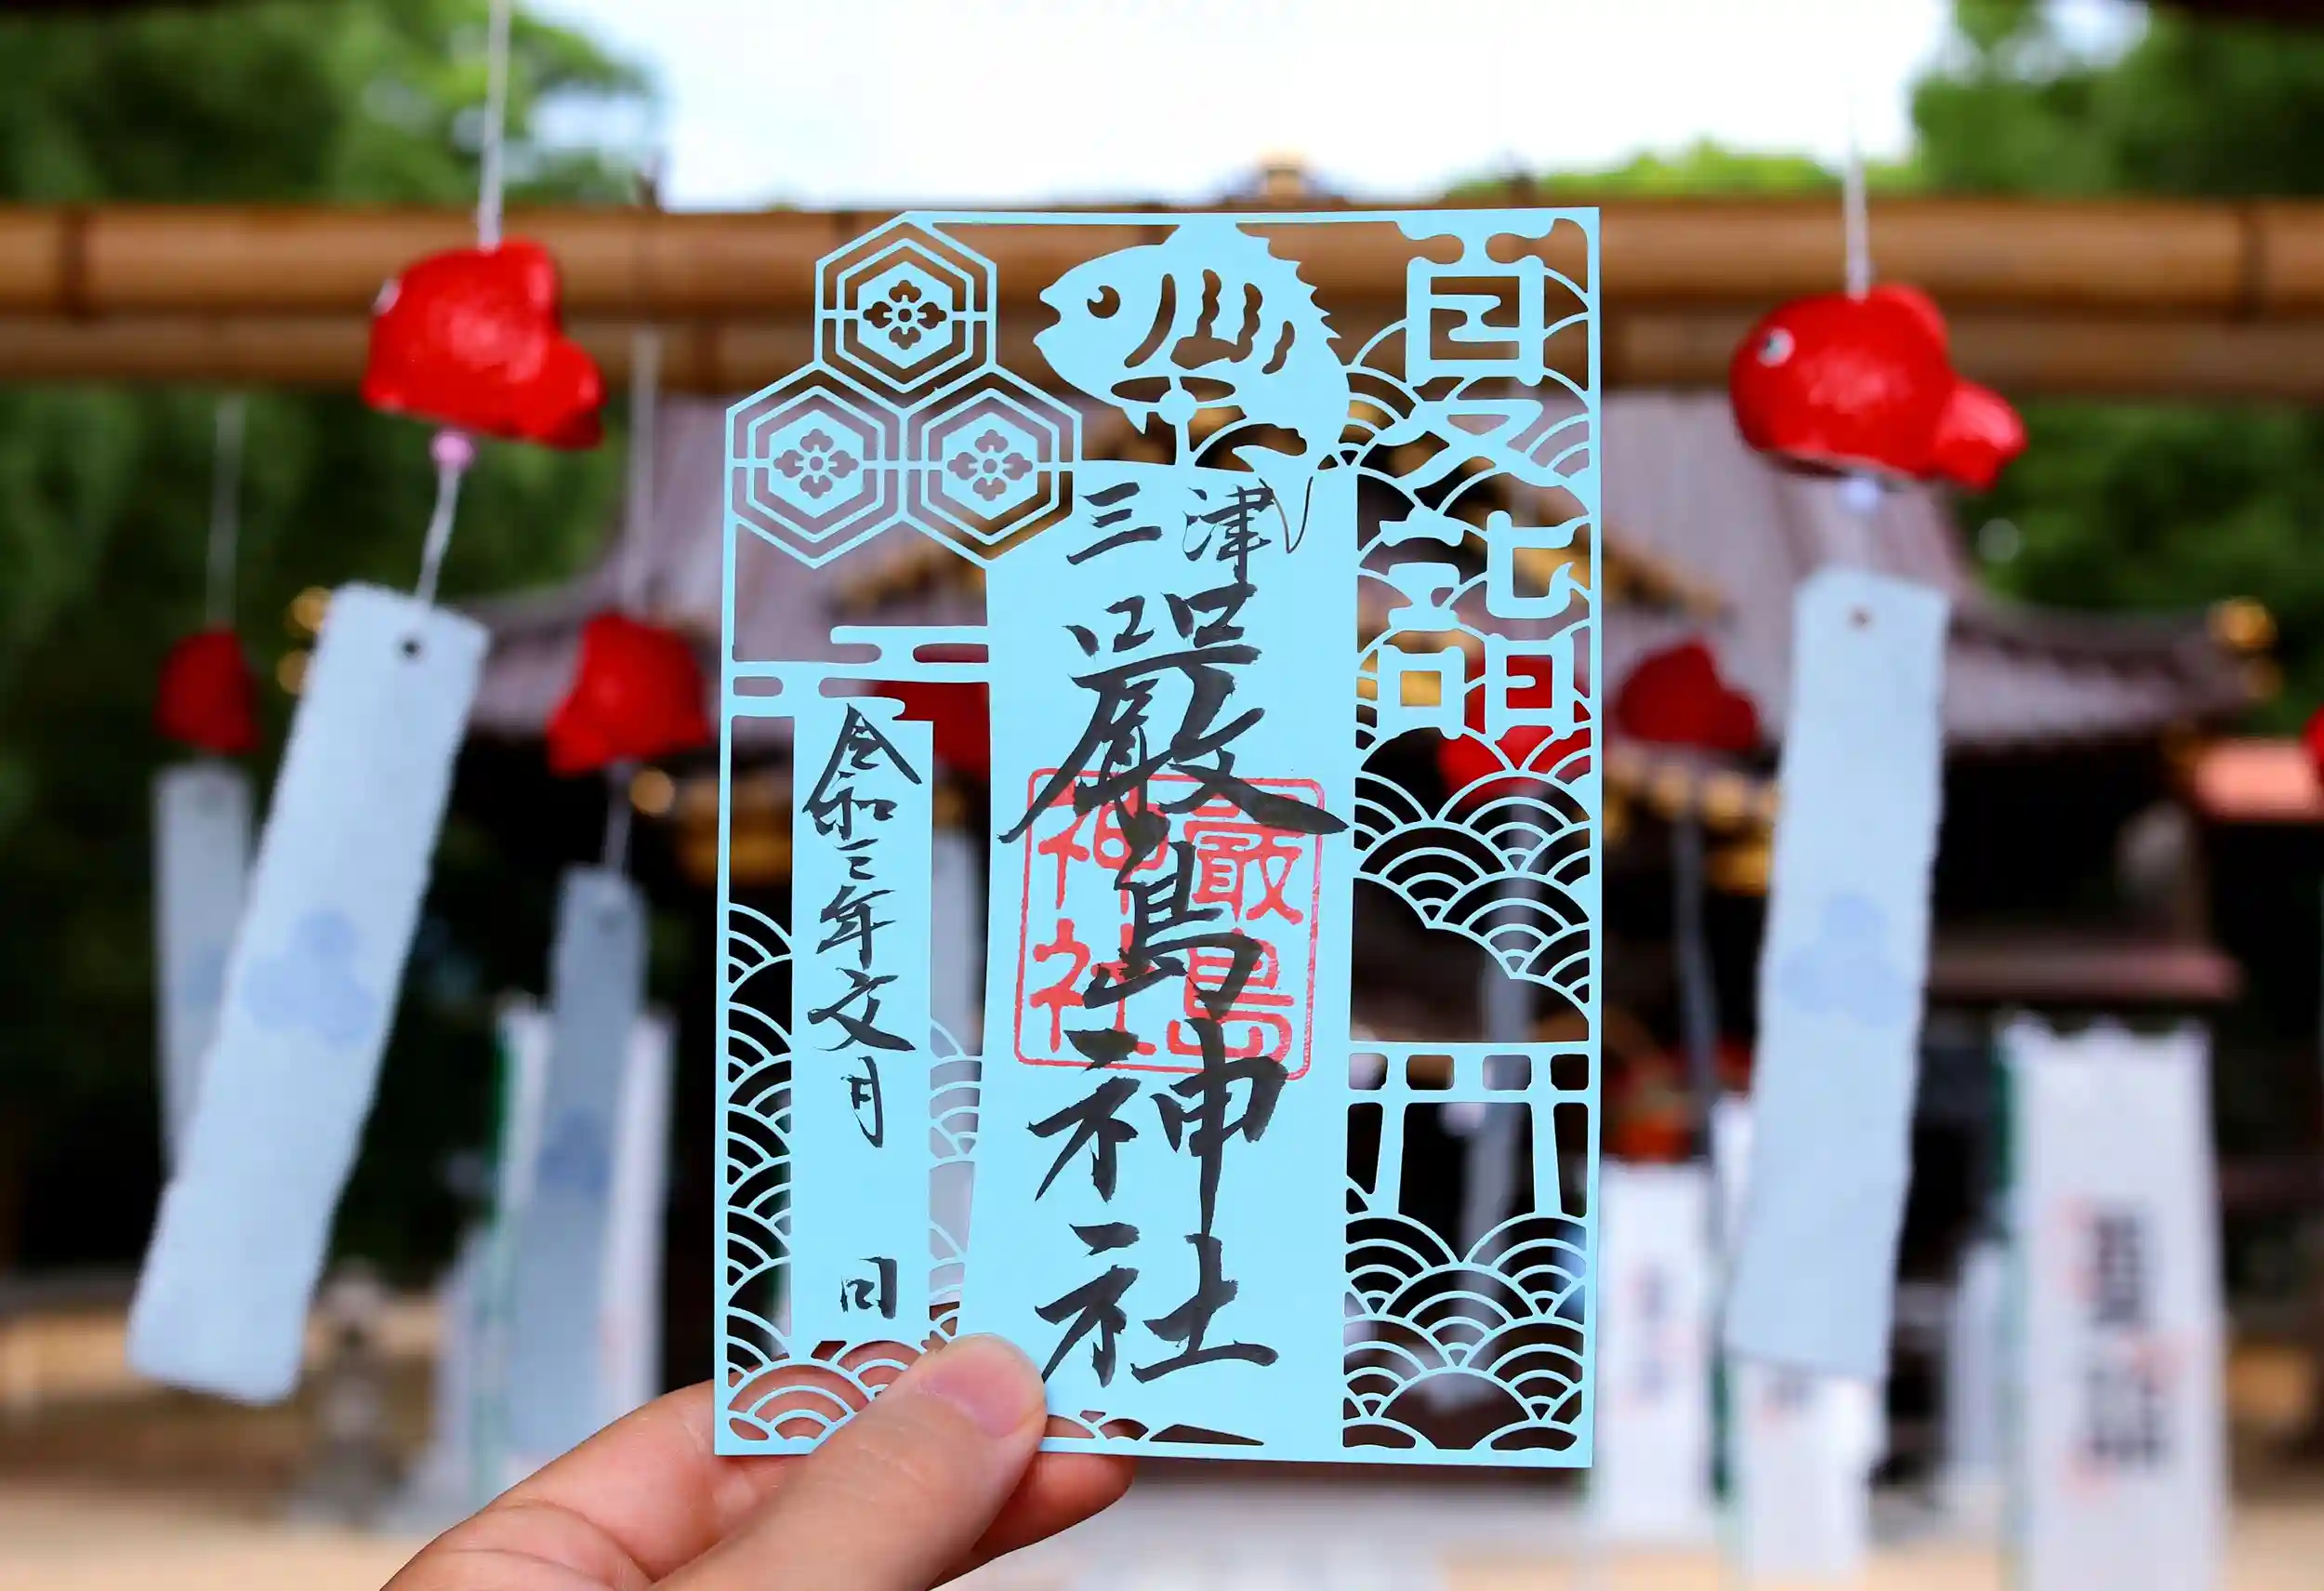 夏詣
三津
嚴島神社
嚴島
神社
令和三年文月
日